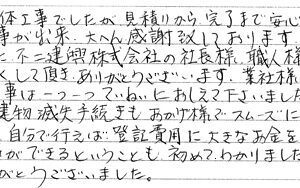 体工事でしたが見積りから、完了まで安心
事が出来、大へん感謝致しております
に不二建興株式会社の社長様、職人様
くして頂き、ありがとうございます。業社様
事は一つ一つていねいにおしえて下さいました
建物滅失手続きもおかげ様でスムーズに
、自分で行えば登記費用に大きなお金を
ができるということも、初めてわかりました
がとうございました。